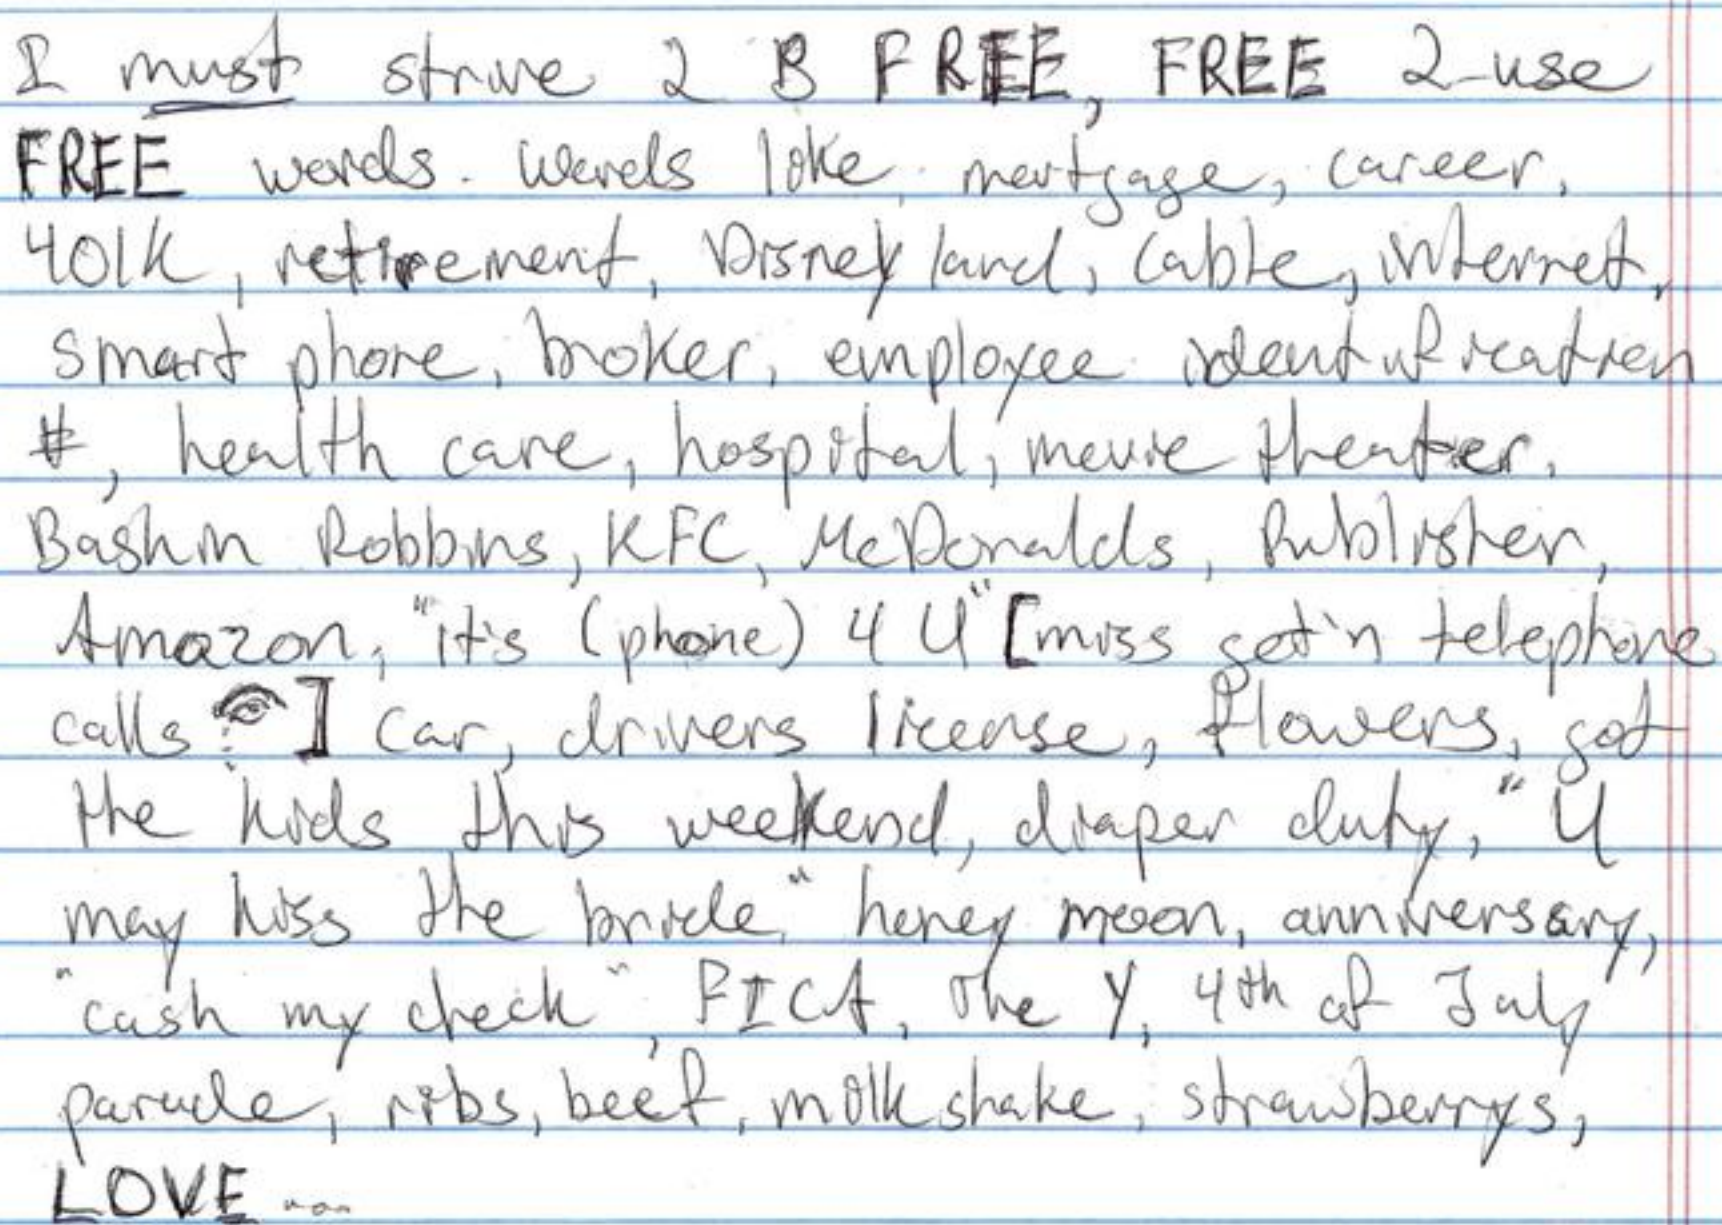 I must strive 2 B FREE, FREE 2-use
FREE words. Words like, mortgage, career,
401K, retirement, Disney land, Cable, internet,
smart phone, broker, employee identification
#, health care, hospital, movie theater,
Baskin Robbins, KFC, McDonalds, Publisher,
Amazon, "it's (phone) 4 U" [miss get'n telephone
calls ] car, drivers license, flowers, got
the kids this weekend, diaper duty, "U
may kiss the bride," honey moon, anniversary,
"cash my check", FICA, the Y, 4th of July
parade, ribs, beef, milk shake, strawberrys,
LOVE...